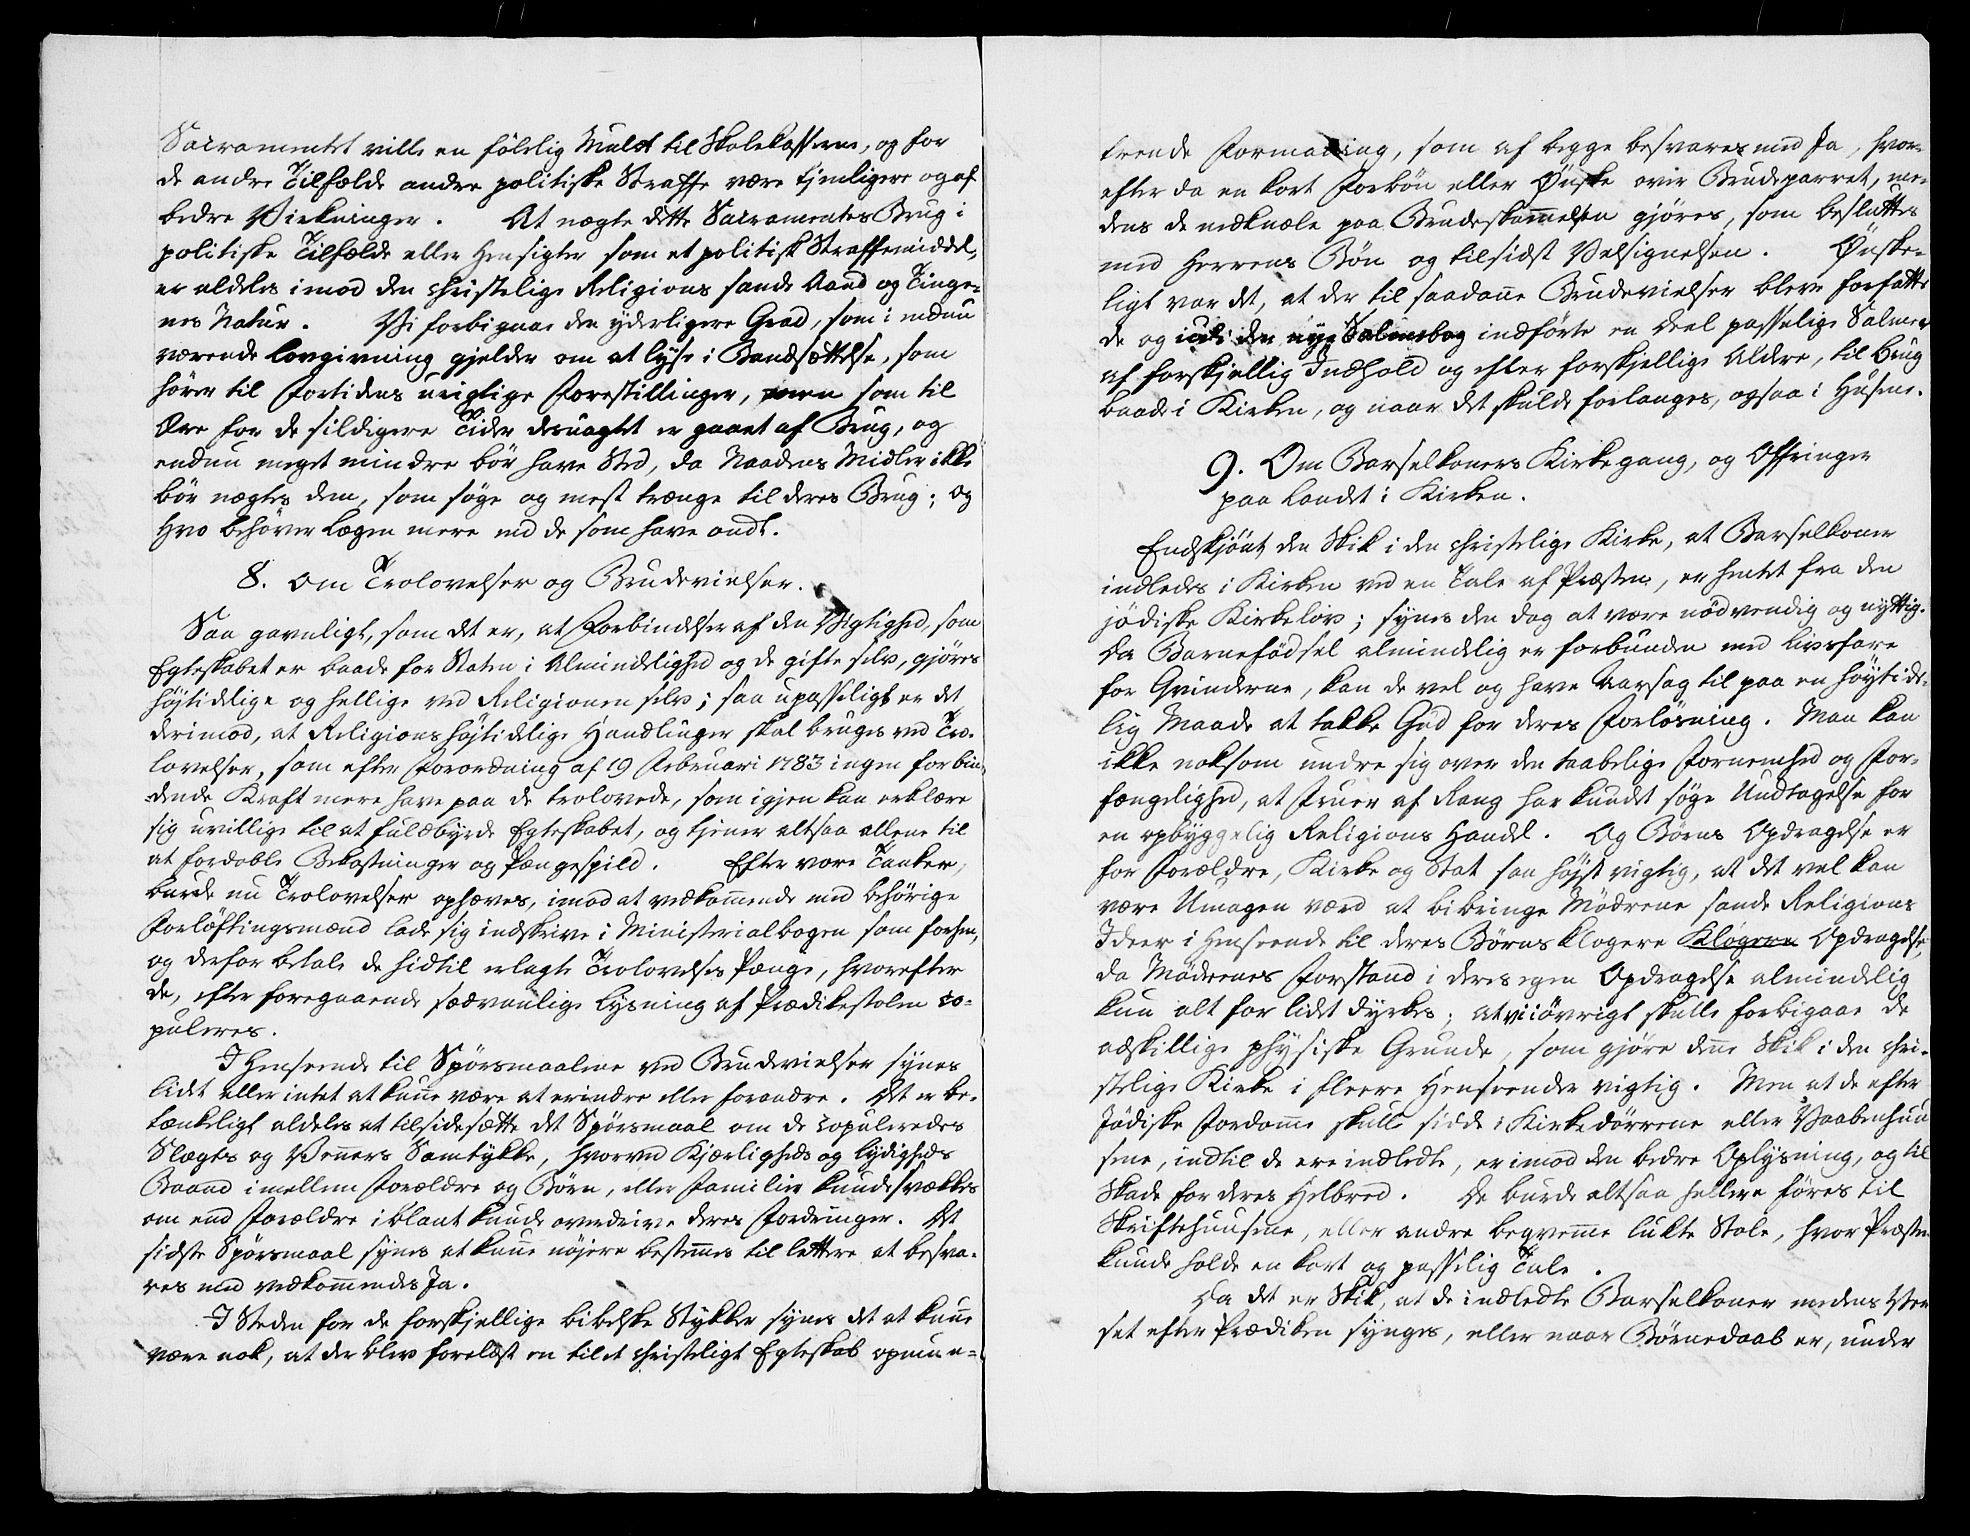 Sacramentet ville en følelig Mulct til Skolekasserne, og for
de andre Tilfælde andre politiske Straffe være tjenligere og af
bedre Virkninger. At nægte dette Sacramentes Brug i
politiske Tilfælde eller Hensigter som et politisk Straffemiddel,
er aldeles imod den christelige Religions sande Aand og Tinge-
nes Natur. Vi forbigaae den yderligere Grad, som i endnu
værende Lovgivning gjelder om at lyse i Bandsættelse, som
hörer til Fortidens urigtige Forestillinger, men som til
Ære for de sildigere Tider desuagtet er gaaet af Brug, og
endnu meget mindre bör have Sted, da Naadens Midler ikke
bör nægtes dem, som söge og mest trænge til deres Brug; og
Hvo behöver Lægen mere end de som have ondt.
8. Om Trolovelser og Brudevielser.
Saa gavnligt, som det er, at Forbindelser af den Vigtighed, som
Egteskabet er baade for Staten i Almindelighed og de gifte selv, gjöres
höjtidelige og hellige ved Religionen selv; saa upasseligt er det
derimod, at Religions höjtidelige Handlinger skal bruges ved Tro-
lovelser, som efter Forordning af 19 Februari 1783 ingen forbin-
dende Kraft mere have paa de trolovede, som igjen kan erklære
sig uvillige til at fuldbyrde Egteskabet, og tjener altsaa allene til
at fordoble Bekostninger og Pængespild. Efter vore Tanker,
burde nu Trolovelser ophæves, imod at vedkommende med behörige
Forlöftingsmænd lade sig indskrive i Ministerialbogen som forhen,
og derfor betale de hidtil erlagte Trolovelses Pænge, hvorefter
de, efter foregaaende sædvanlige Lysning af Prædikestolen co-
puleres.
I Henseende til Spörsmaalene ved Brudevielser synes
lidt eller intet at kunne være at erindre eller forandre. Det er be-
tænkeligt aldeles at tilsidesætte det Spörsmaal om de Copuleredes
Slægts og Venners Samtykke, hvorved Kjærligheds og Lydigheds
Baand imellem Forældre og Börn, eller Familier kunde svækkes
om end Forældre iblant kunde overdrive deres Fordringer. Det
sidste Spörsmaal synes at kunne nöjere bestemmes til lettere at besva-
res med vedkommendes Ja.
I Steden for de forskjellige bibelske Stykker synes det at kunne
være nok, at der blev forelæst en til et christeligt Egteskab opmun-
trende Formaning, som af begge besvares med Ja, hvor-
efter da en kort Forbön eller Önske over Brudeparret, me-
dens de nedknæle paa Brudeskammelen gjöres, som besluttes
med Herrens Bön og tilsidst Velsignelsen. Önske-
ligt var det, at der til saadanne Brudevielser bleve forfatte-
de og i den nye Psalmebog indförte en Deel passelige Salmer
af forskjellig Indhold og efter forskjellige Aldere, til Brug
baade i Kirken, og naar det skulde forlanges, ogsaa i Husene.
9. Om Barselkoners Kirkegang, og Offringer
paa Landet i Kirken.
Endskjönt den Skik i den christelige Kirke, at Barselkoner
indledes i Kirken ved en Tale af Præsten, er hentet fra den
jödiske Kirkelov; synes den dog at være nödvendig og nyttig.
Da Barnefödsel almindelig er forbunden med Livsfare
for Qvinderne, kan de vel og have Aarsag til paa en höytide-
lig Maade at takke Gud for deres Forlösning. Man kan
ikke noksom undre sig over den taabelige Fornemhed og For-
fængelighed, at Fruer af Rang har kundet söge Undtagelse for
en opbyggelig Religions Handel. Og Börns Opdragelse er
for Forældre, Kirke og Stat saa höjst vigtig, at det vel kan
være Umagen værd at bibringe Mödrene sande Religions
Ideer i Henseende til deres Börns klogere Klogere Opdragelse,
da Mödrenes Forstand i deres egen Opdragelse almindelig
kun alt for lidet dyrkes; at vi iövrigt skulle forbigaae de
adskillige physiske Grunde, som gjöre denne Skik i den chri-
stelige Kirke i fleere Henseender vigtig. Men at de efter
Jödiske Fordomme skulle sidde i Kirkedörrene eller Vaabenhuu-
sene, indtil de ere indledte, er imod den bedre Oplysning, og til
Skade for deres Helbred. De burde altsaa hellere föres til
Skriftehuusene, eller andre beqvemme lukte Stole, hvor Præsten
kunde holde en kort og passelig Tale.
Da det er Skik, at de indledte Barselkoner medens Ver-
set efter Prædiken synges, eller naar Börnedaab er, under